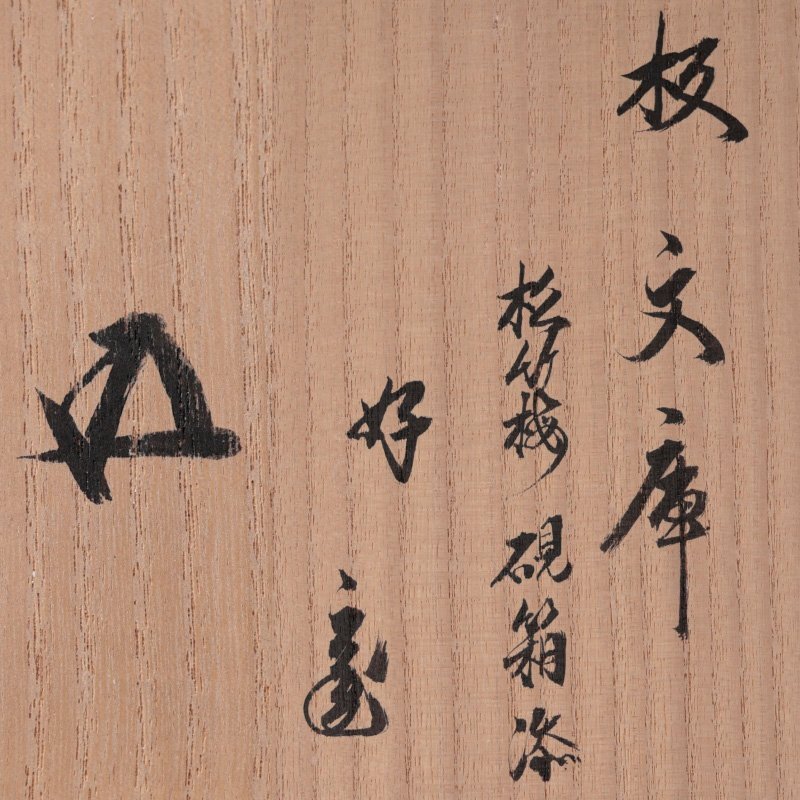 板文庫
松竹梅 硯箱添
好